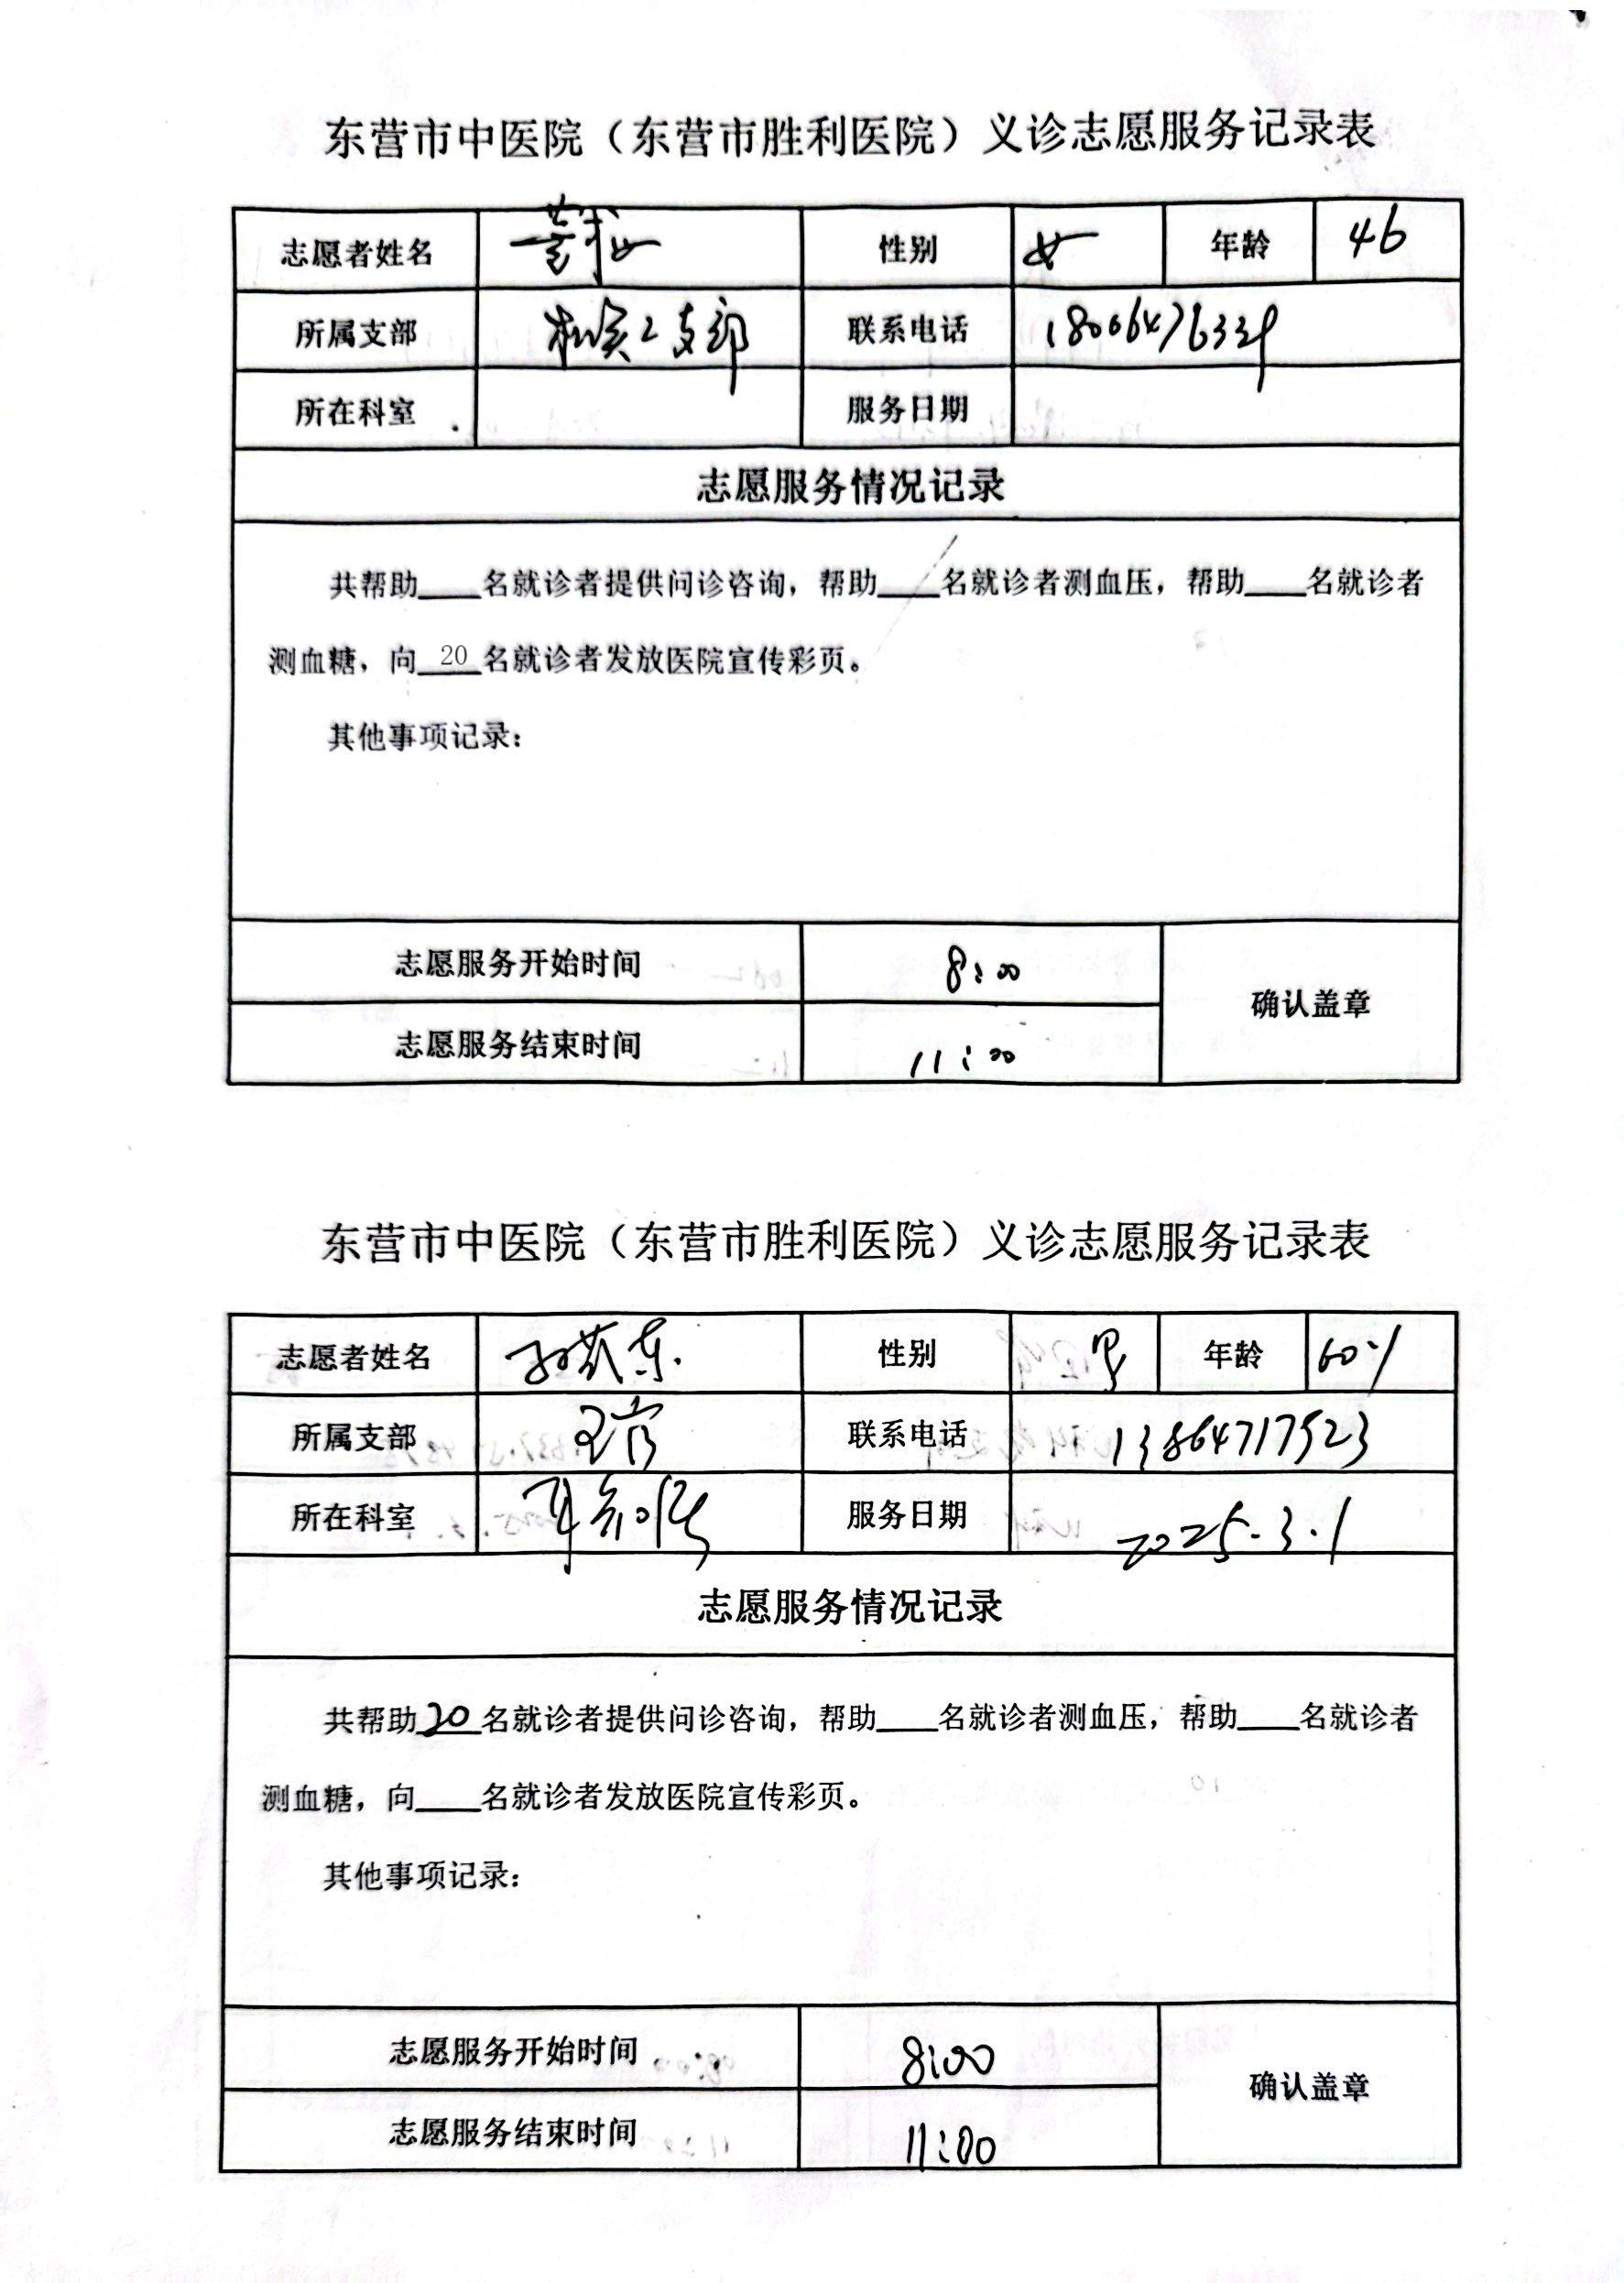 东营市中医院（东营市胜利医院）义诊志愿服务记录表
志愿者姓名 性别 女 年龄 46
所属支部 机关2支部 联系电话 18006476339
所在科室 服务日期
志愿服务情况记录
共帮助____名就诊者提供问诊咨询，帮助____名就诊者测血压，帮助____名就诊者
测血糖，向 20 名就诊者发放医院宣传彩页。
其他事项记录：
志愿服务开始时间 8:00
确认盖章
志愿服务结束时间 11:00
东营市中医院（东营市胜利医院）义诊志愿服务记录表
志愿者姓名 性别 男 年龄 60岁
所属支部 联系电话 13864717523
所在科室 服务日期 2025.3.1
志愿服务情况记录
共帮助 20 名就诊者提供问诊咨询，帮助____名就诊者测血压，帮助____名就诊者
测血糖，向____名就诊者发放医院宣传彩页。
其他事项记录：
志愿服务开始时间 8:00
确认盖章
志愿服务结束时间 11:00